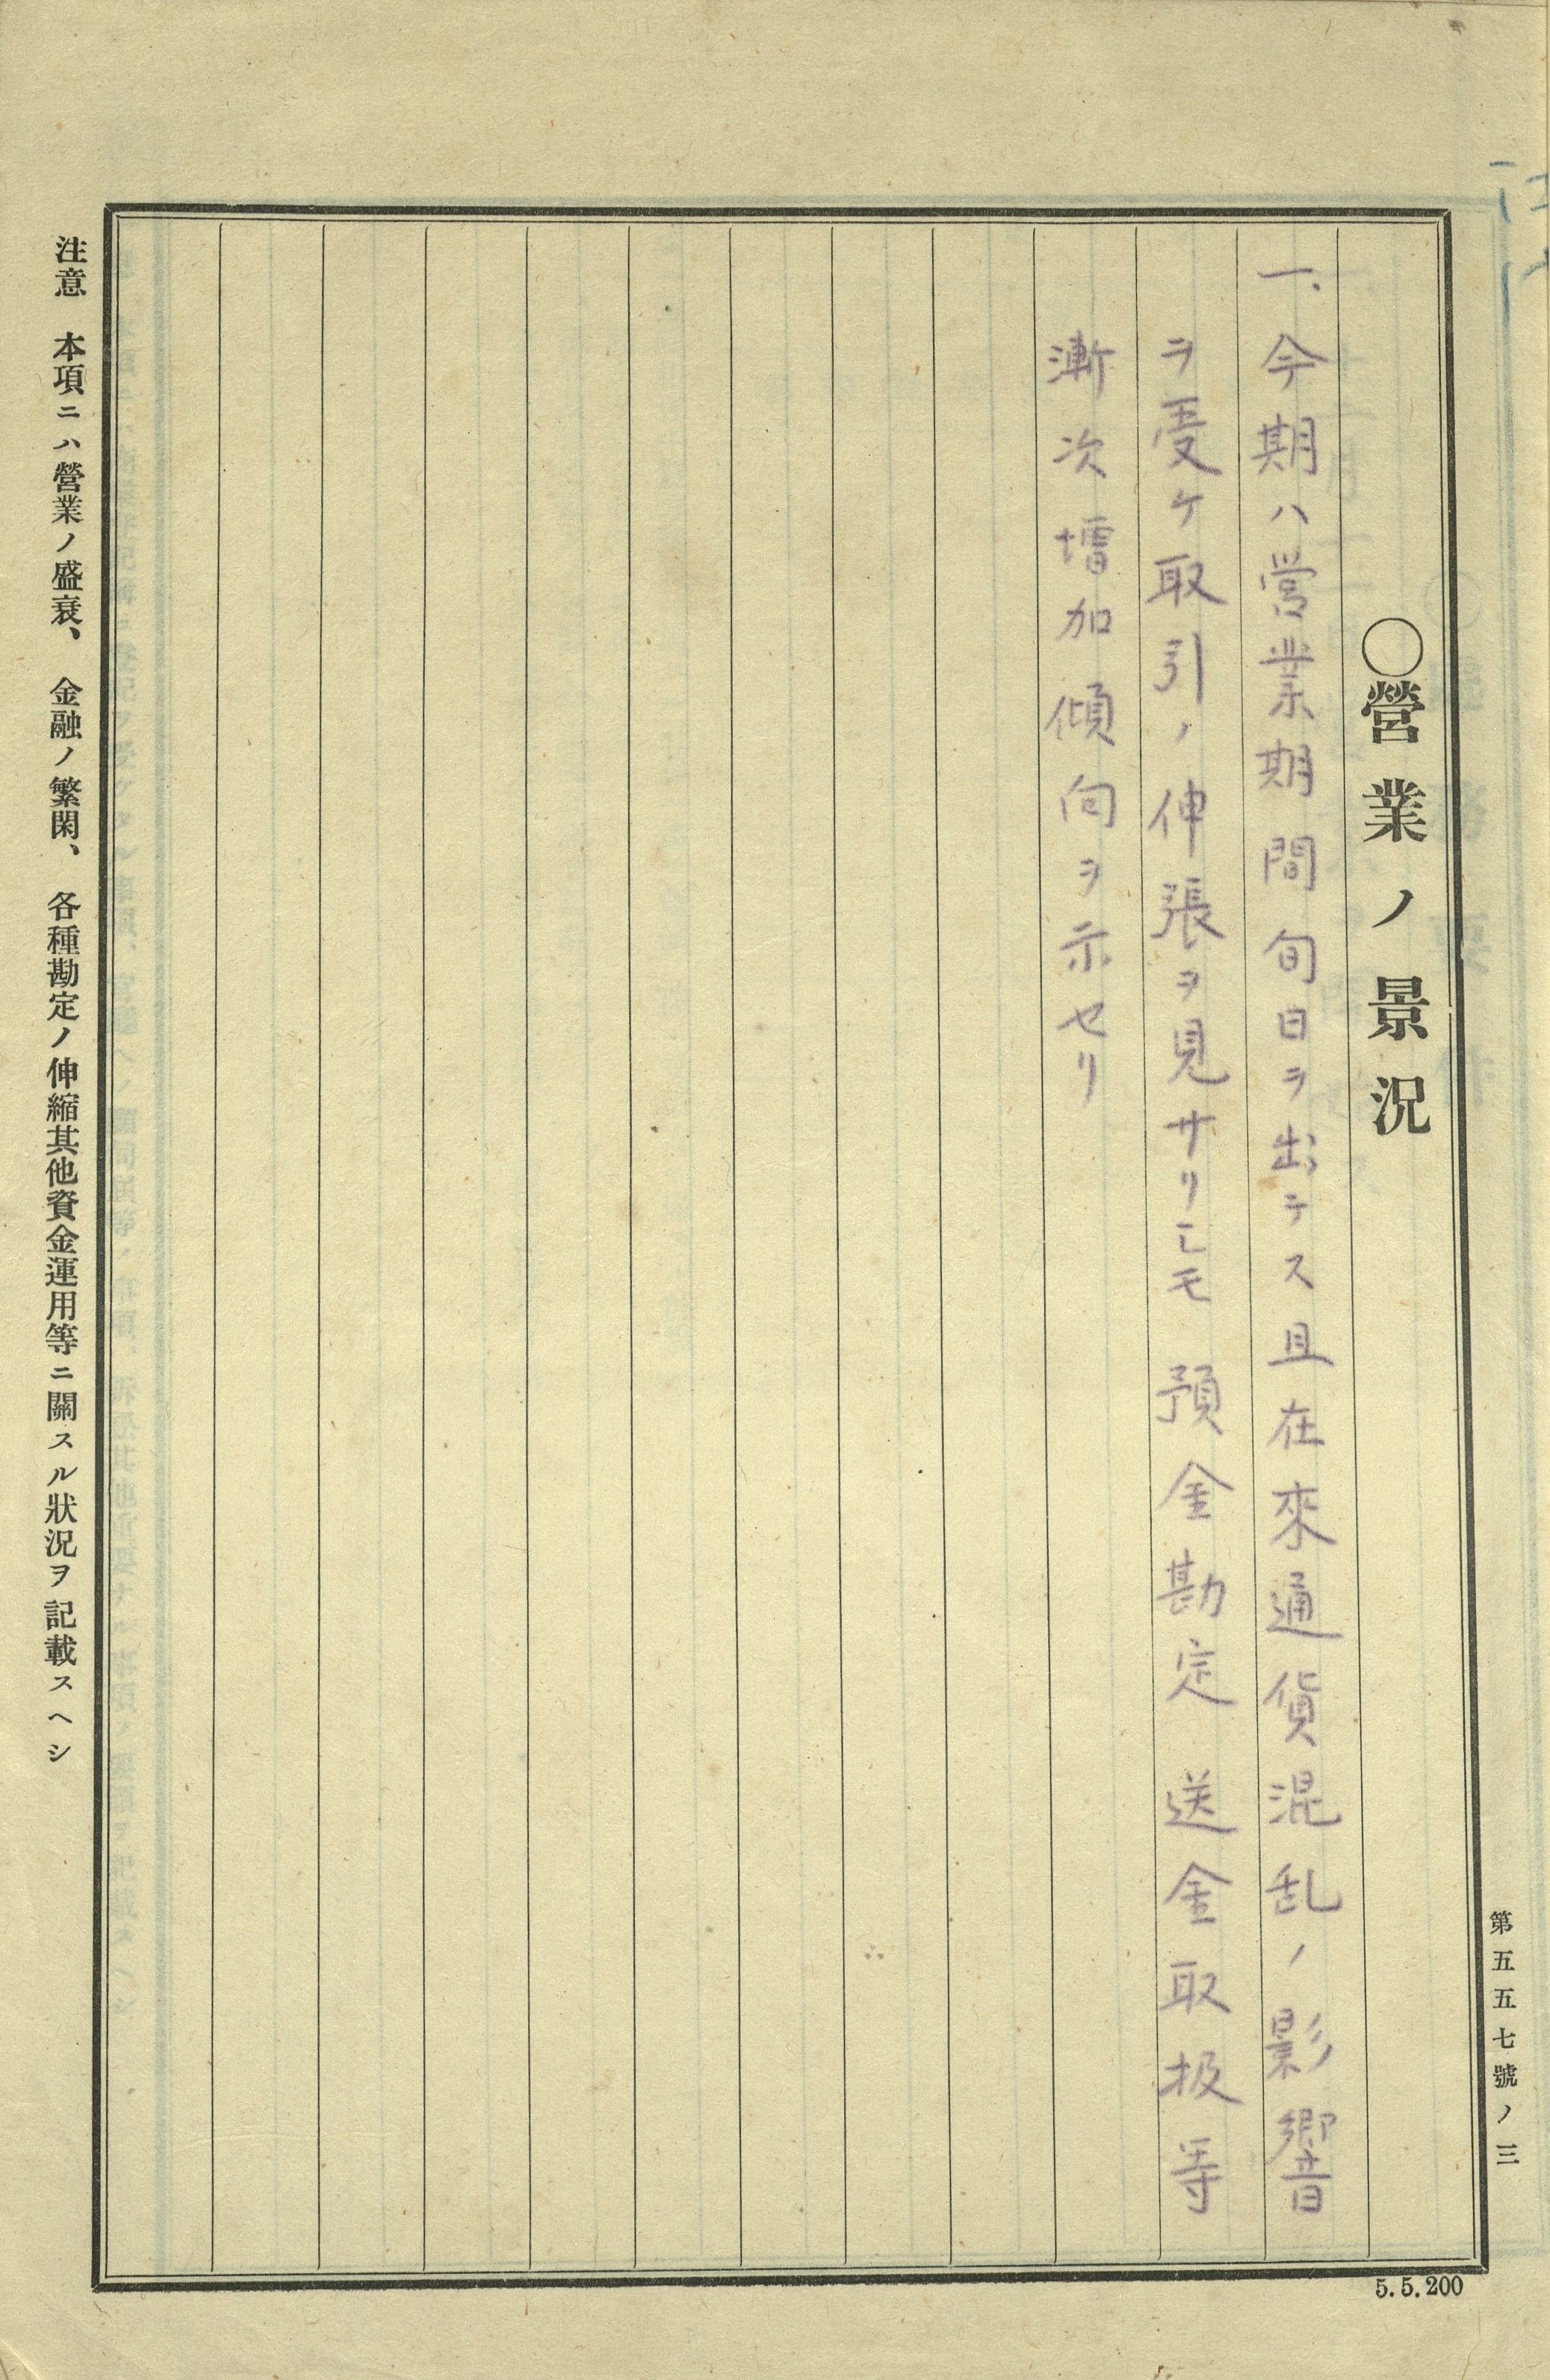 第五五七號ノ三
○營業ノ景況
一、今期ハ営業期間旬日ヲ出テス且在來通貨混乱ノ影響
ヲ受ケ取引ノ伸張ヲ見サリシモ預金勘定送金取扱等
漸次増加傾向ヲ示セリ
注意 本項ニハ營業ノ盛衰、金融ノ繁閑、各種勘定ノ伸縮其他資金運用等ニ關スル狀況ヲ記載スヘシ
5.5.200